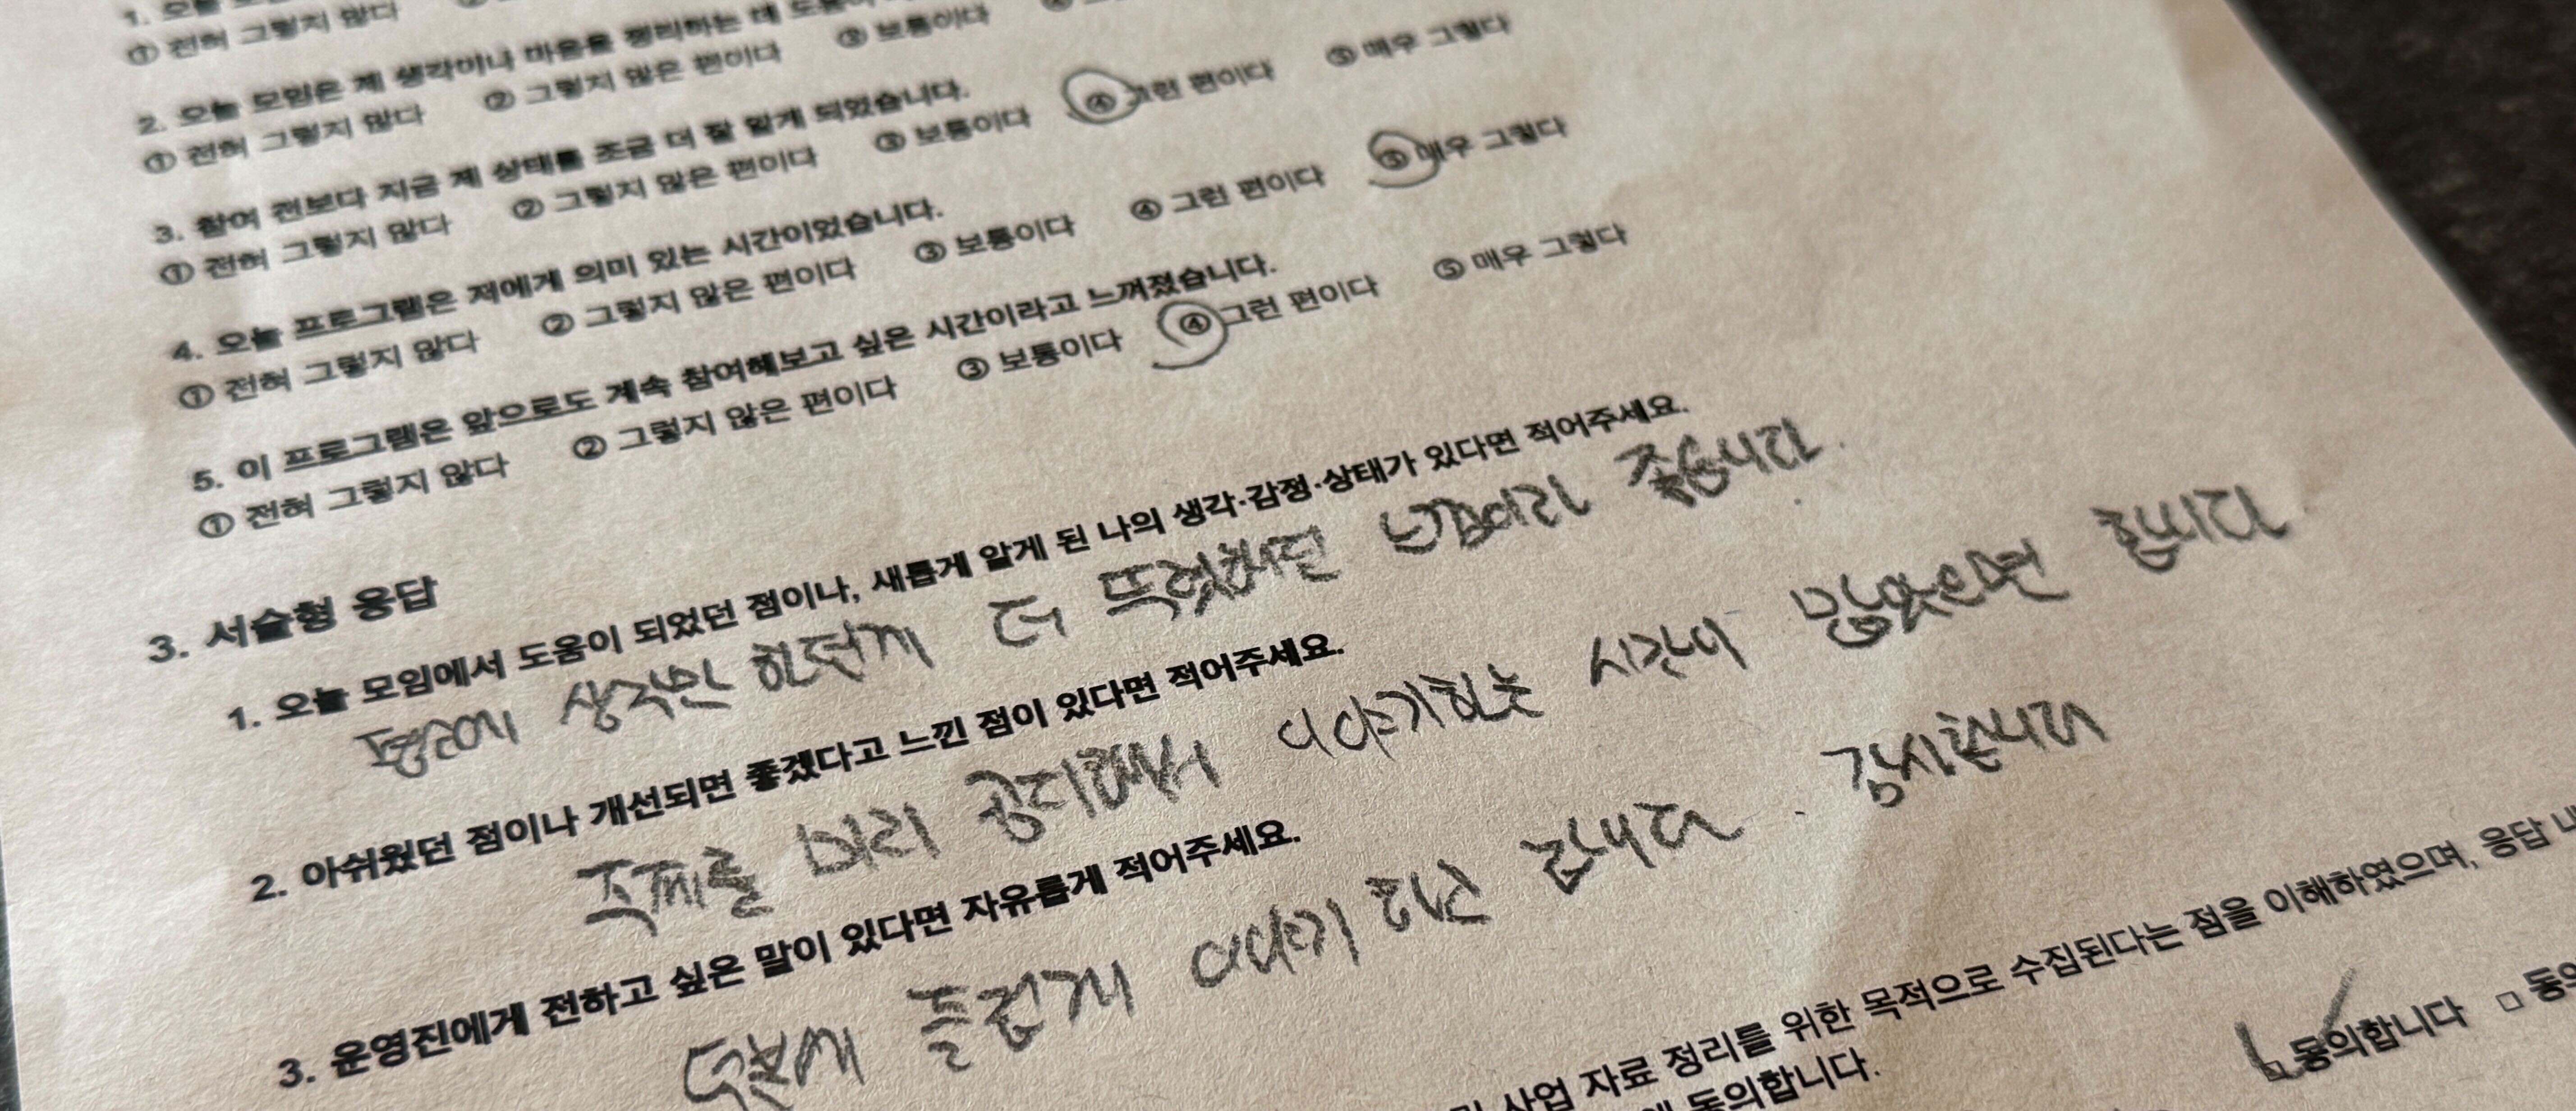 1. 오늘
① 전혀 그렇지 않다
2. 오늘 모임은 제 생각이나 마음을 정리하는 데 도움이
① 전혀 그렇지 않다 ② 그렇지 않은 편이다 ③ 보통이다
3. 참여 전보다 지금 제 상태를 조금 더 잘 알게 되었습니다.
① 전혀 그렇지 않다 ② 그렇지 않은 편이다 ③ 보통이다 ④ 그런 편이다 ⑤ 매우 그렇다
4. 오늘 프로그램은 저에게 의미 있는 시간이었습니다.
① 전혀 그렇지 않다 ② 그렇지 않은 편이다 ③ 보통이다 ④ 그런 편이다 ⑤ 매우 그렇다
5. 이 프로그램은 앞으로도 계속 참여해보고 싶은 시간이라고 느껴졌습니다.
① 전혀 그렇지 않다 ② 그렇지 않은 편이다 ③ 보통이다 ④ 그런 편이다 ⑤ 매우 그렇다
3. 서술형 응답
1. 오늘 모임에서 도움이 되었던 점이나, 새롭게 알게 된 나의 생각·감정·상태가 있다면 적어주세요.
평소에 생각만 하던게 더 뚜렷해진 느낌이라 좋습니다.
2. 아쉬웠던 점이나 개선되면 좋겠다고 느낀 점이 있다면 적어주세요.
주제를 미리 공지해서 이야기하는 시간이 많았으면 합니다.
3. 운영진에게 전하고 싶은 말이 있다면 자유롭게 적어주세요.
덕분에 즐겁게 이야기 하고 갑니다. 감사합니다
사업 자료 정리를 위한 목적으로 수집된다는 점을 이해하였으며, 응답 내
동의합니다.
□ 동의합니다 □ 동의